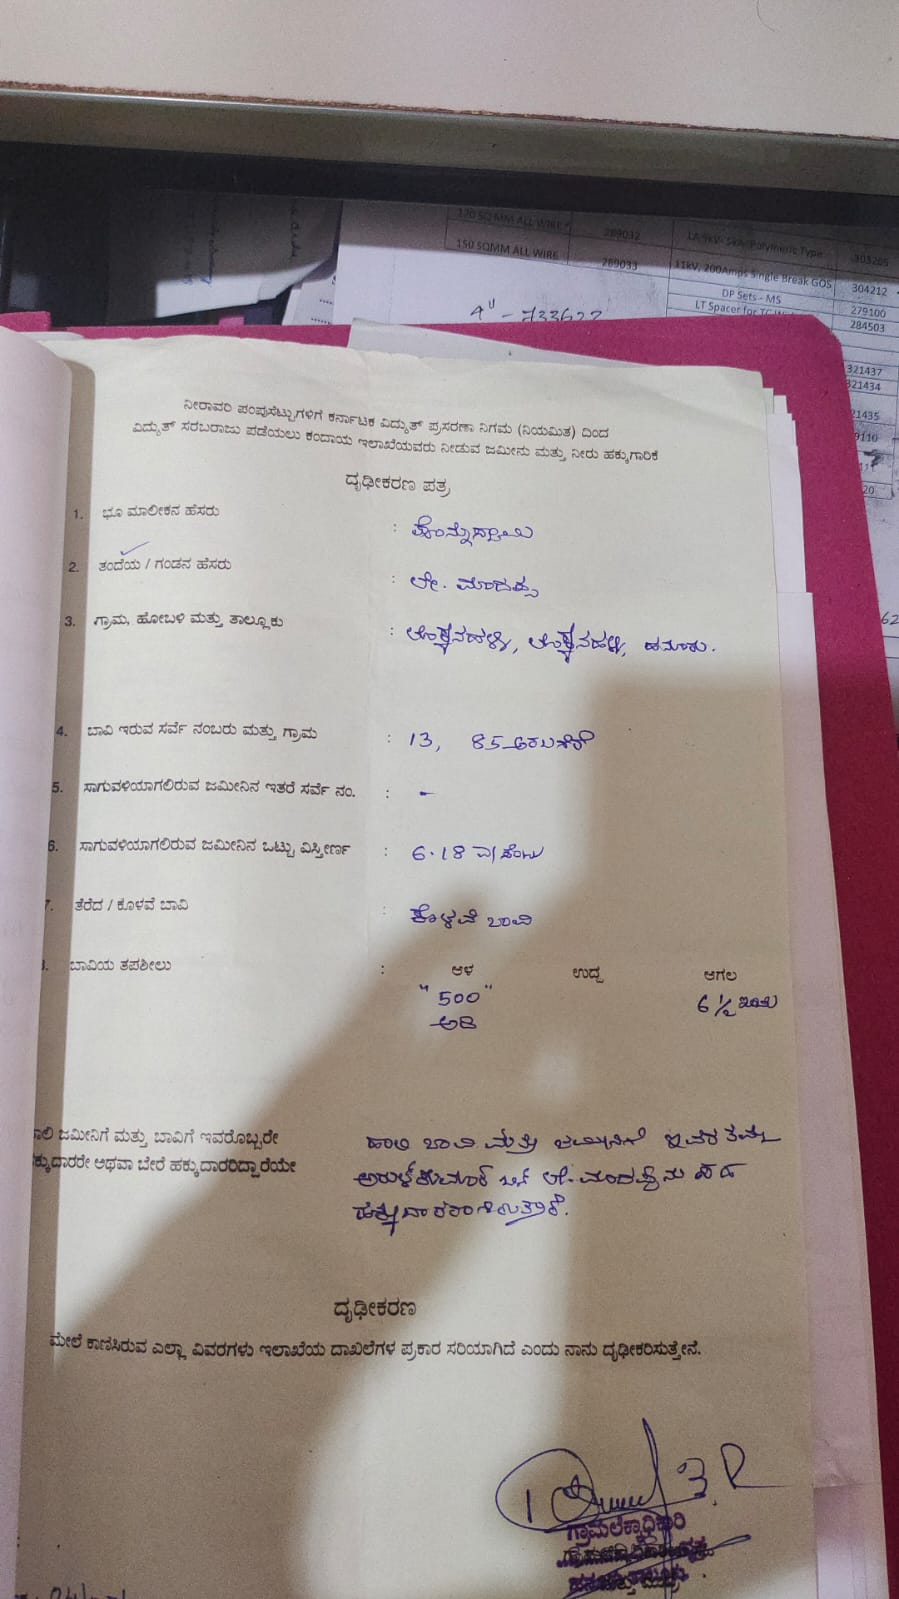 120 SQ MM ALL WIRE
289032
LA 9kV- 5kA- Polymeric Type
303265
150 SQMM ALL WIRE
289033
11kV, 200Amps Single Break GOS
304212
DP Sets - MS
279100
LT Spacer for
284503
4" - 733622
321437
321434
ನೀರಾವರಿ ಪಂಪುಸೆಟ್ಟುಗಳಿಗೆ ಕರ್ನಾಟಕ ವಿದ್ಯುತ್ ಪ್ರಸರಣಾ ನಿಗಮ (ನಿಯಮಿತ) ದಿಂದ
ವಿದ್ಯುತ್ ಸರಬರಾಜು ಪಡೆಯಲು ಕಂದಾಯ ಇಲಾಖೆಯವರು ನೀಡುವ ಜಮೀನು ಮತ್ತು ನೀರು ಹಕ್ಕುಗಾರಿಕೆ
ದೃಢೀಕರಣ ಪತ್ರ
1. ಭೂ ಮಾಲೀಕನ ಹೆಸರು : ಪೊನ್ನುಸ್ವಾಮಿ
2. ತಂದೆಯ / ಗಂಡನ ಹೆಸರು : ಲೇ. ಮಾದಪ್ಪ
3. ಗ್ರಾಮ, ಹೋಬಳಿ ಮತ್ತು ತಾಲ್ಲೂಕು : ಹನೂರು.
4. ಬಾವಿ ಇರುವ ಸರ್ವೆ ನಂಬರು ಮತ್ತು ಗ್ರಾಮ : 13, 85
5. ಸಾಗುವಳಿಯಾಗಲಿರುವ ಜಮೀನಿನ ಇತರೆ ಸರ್ವೆ ನಂ. : -
6. ಸಾಗುವಳಿಯಾಗಲಿರುವ ಜಮೀನಿನ ಒಟ್ಟು ವಿಸ್ತೀರ್ಣ : 6.18
7. ತೆರೆದ / ಕೊಳವೆ ಬಾವಿ : ಕೊಳವೆ ಬಾವಿ
ಬಾವಿಯ ತಪಶೀಲು : ಆಳ ಉದ್ದ ಅಗಲ
"500" 6 1/2 ಇಂಚು
ಅಡಿ
ಜಮೀನಿಗೆ ಮತ್ತು ಬಾವಿಗೆ ಇವರೊಬ್ಬರೇ
ಹಕ್ಕುದಾರರೇ ಅಥವಾ ಬೇರೆ ಹಕ್ಕುದಾರರಿದ್ದಾರೆಯೇ
ಹಾಲಿ ಬಾವಿ ಮತ್ತು ಜಮೀನಿಗೆ ಇವರ ತಮ್ಮ
ಅರುಳ್ ಕುಮಾರ್ ಬಿನ್ ಲೇ.
ಹಕ್ಕುದಾರರಾಗಿರುತ್ತಾರೆ.
ದೃಢೀಕರಣ
ಮೇಲೆ ಕಾಣಿಸಿರುವ ಎಲ್ಲಾ ವಿವರಗಳು ಇಲಾಖೆಯ ದಾಖಲೆಗಳ ಪ್ರಕಾರ ಸರಿಯಾಗಿದೆ ಎಂದು ನಾನು ದೃಢೀಕರಿಸುತ್ತೇನೆ.
ಗ್ರಾಮಲೆಕ್ಕಾಧಿಕಾರಿ